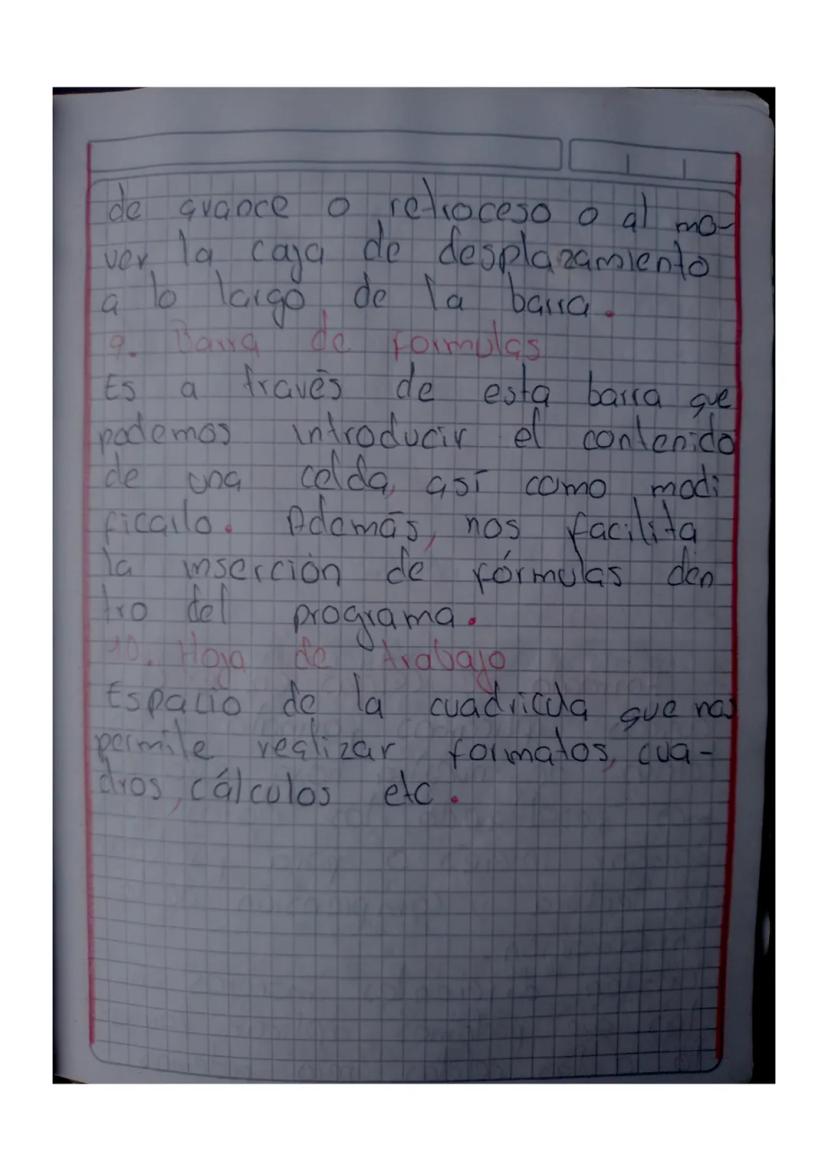 de avance o retroceso o al mo-
ver la caja de desplazamiento
a lo largo de la barra.
9. Barra de formulas
Es a través de esta barra que
podemos introducir el contenido
de una celda, así como modi
ficarlo. Además, nos facilita
la inserción de fórmulas den
tro del programa.
10. Hoja de trabajo
Espacio de la cuadricula que nos
permite realizar formatos, cua-
dros, cálculos etc.